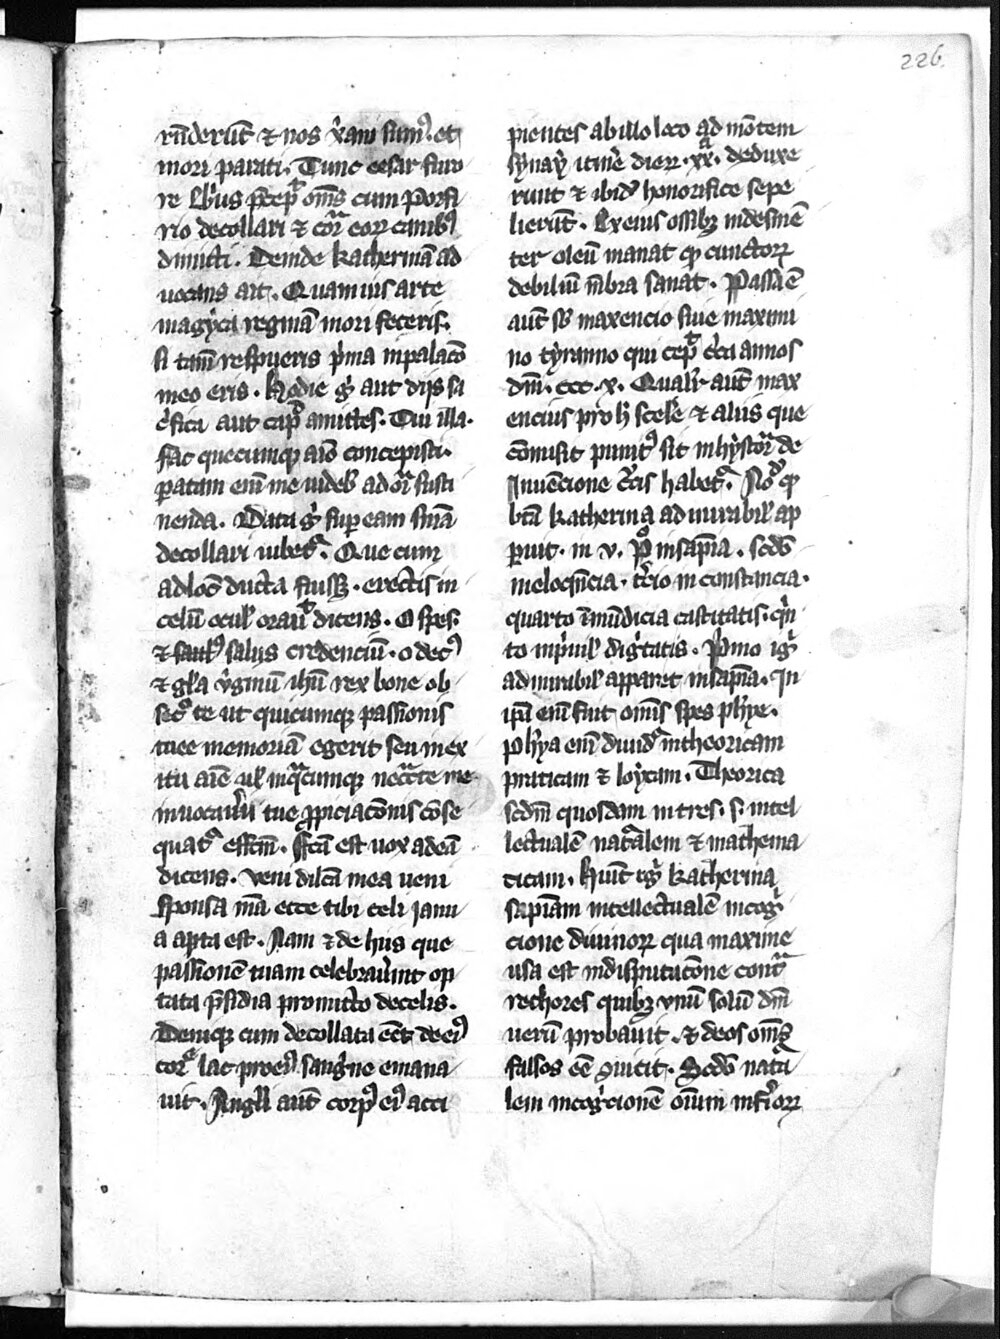 226.
rñderũt ⁊ nos xp̃iani sumꝰ et
mori parati. Tunc cesar furo
re ebriꝰ p̃cepit om̃s cum Porfi
rio decollari ⁊ corꝑa eoꝝ canibꝰ
dimicti. Deinde katherinã ad
uocans ait. Quamuis arte
magyca reginã mori feceris.
si tam̃ respueris p̃ma in palacio
meo eris. Hodie gͦ aut dijs sa
c̓fica aut capͥd amittes. Cui illa.
fac quecumqꝫ aĩo concepisti.
ꝑatam enĩ me uidebꝭ ad oĩa susti
nenda. Data gͦ suꝑ eam sñia
decollari iubetᷣ. Que cum
ad locũ ducta fuisꝫ. erectis in
celũ oculꝭ orauit dicens. O spes
⁊ salus credenciũ. o decꝰ
⁊ gl̃a v̓ginũ ih̃u rex bone ob
secͦ te ut quicumqꝫ passionis
mee memoriã egerit seu in ex
itu aĩe ul̃ in q̃cumqꝫ necc̃itate me
inuocauerit tue ꝓpiciacõnis cõse
quatᷣ effc̃m. Fc̃a est uox ad eã
dicens. Veni dilc̃a mea ueni
sponsa m̃a ecce tibi celi ianu
a aꝑta est. Nam ⁊ de hiis que
passionẽ tuam celebrauerint op
tata p̃sidia promitto de celis.
Denique cum decollata eẽt de eiꝰ
corꝑe lac pro eiꝰ sangͥne emana
uit. Angl̓i aut̃ corpꝰ eiꝰ acci
pientes ab illo loco ad mõtem
synay itin̓e dieꝝ. xx. deduxe
runt ⁊ ibid̃ honorifice sepe
lierũt. Ex eius ossibꝫ indesinẽ
ter oleũ manat qͩ cunctoꝝ
debiliũ mẽbra sanat. Passa ẽ
aut̃ sub maxencio siue maximi
no tyranno qui cepit c̓ca annos
dñi. ccc. x. Qualr̓ aut̃ max
encius pro h̓ scelere ⁊ aliis que
cõmisit punitꝰ sit in hystoria de
Inuencione c̃cis habetᷣ. Notͣ qͩ
btã katherina admirabilꝭ ap
ꝑuit in v. Pͦ in sapĩa. scd̃o
in eloq̃ncia. t̓cio in constancia.
quarto ĩ mũdicia castitatis. qͥn
to in p̓uil̓ digͥtatis. Pͥmo igͥ
admirabilꝭ apparet in sapĩa. In
ip̃a enĩ fuit om̃is spes phye.
phya enĩ diuidiᷣ in theoricam
praticam ⁊ loycam. Theorica
scd̃m quosdam in tres. s. intel
lectualẽ nat̃alem ⁊ mathema
ticam. Huit igͥ katherina
sapiam intellectualẽ in cogͥ
cione diuinoꝝ qua maxime
usa est in disputacõne contͣ
rethores quibꝫ vnũ solũ dm̃
uerũ probauit. ⁊ deos om̃s
falsos eẽ ꝯuicit. Scd̃o natᷓa
lem in cogͥcionẽ oĩum inf̓ioꝝ